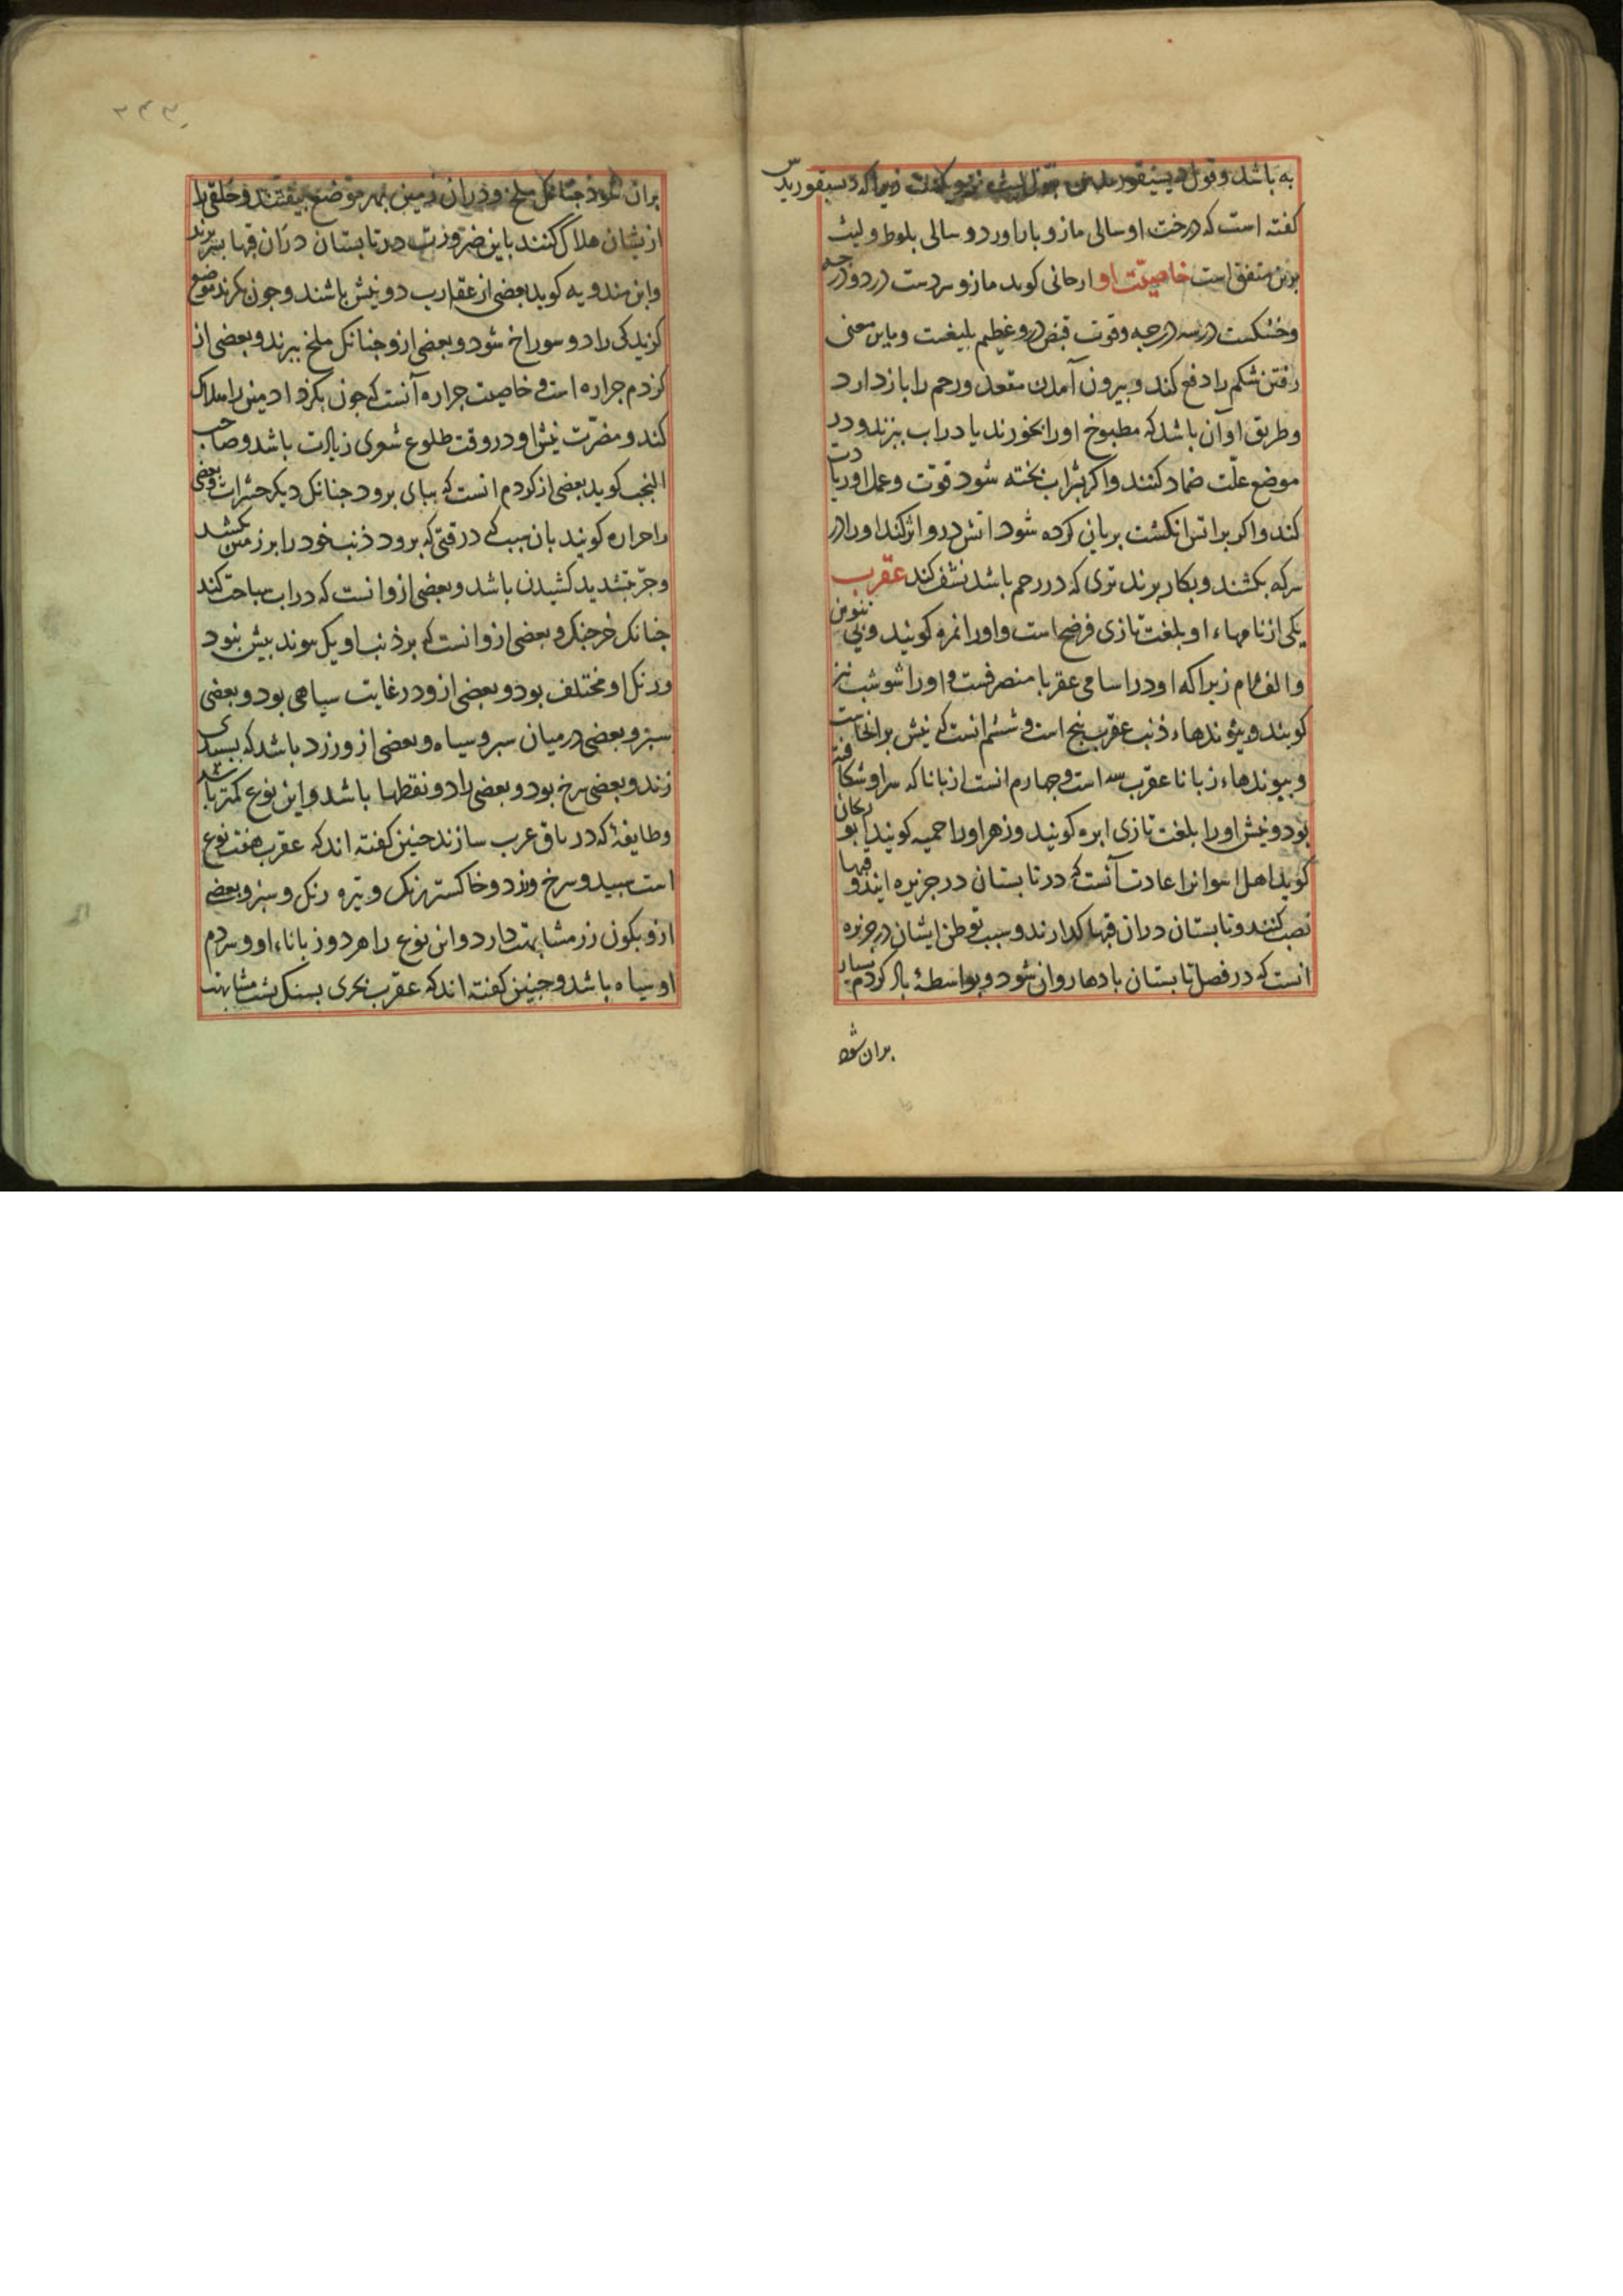 به باشد و قول دیسقوریدس نزدیکست زیرا که دیسقوریدس
کفته است که درخت او سالی مازو بار اورد و سالی بلوط و لیث
برین متفق است خاصیّت او ارجانی کوید مازو سردست در دو درجه
و خشکست در سه درجه و قوت قبض درو عظیم بلیغست و باین معنی
رفتن شکم را دفع کند و بیرون آمدن مقعد و رحم را باز دارد
و طریق او آن باشد که مطبوخ او را بخورند یا در اب ببزند و در
موضع علّت ضماد کنند و اکر بشراب بخته شود قوّت و عمل او زیادت
کند و اکر بر اتش انکشت بریان کرده شود اتش درو اثر کند او را در
سرکه بکشند و بکار برند تری که در رحم باشد نشف کند عقرب
یکی از نامهاء او بلغت تازی فرضخ است و او را نمرو کویند و بی تنوین
و الف لام زیرا که او در اسامی عقربا منصرفست و او را شوشب نیز
کویند و بیوندهاء ذنب عقرب بنج است و ششم انست که نیش بر انجاست
و بیوندهاء زبانا عقرب سه است و جهارم انست از زبانا که سر او شکافته
بود و نیش او را بلغت تازی ابره کویند و زهر او را حمیه کویند ابو ریحان
کوید اهل اهواز را عادت آنست که در تابستان در جزیره ایند و قبها
نصب کنند و تابستان در ان قبها کدارند و سبب توطن ایشان در جزیره
انست که در فصل تابستان بادها روان شود و بواسطهٔ باد کزدم بسیار
بران شود
بران شود جنانک ملخ و در ان زمین بهر موضع بیفتند و خلقی را
ازیشان هلاک کنند باین ضرورت در تابستان در ان قبها بسر برند
و ابن مندویه کوید بعضی از عقارب دو نیش باشند و جون بکزند موضع
کزیدکی را دو سوراخ شود و بعضی ازو جنانک ملخ ببرند و بعضی از
کزدم جراره است و خاصیت جراره آنست که جون بکزد ادمین را هلاک
کند و مضرّت نیش او در وقت طلوع شعری زیادت باشد و صاحب
النخب کوید بعضی از کزدم انست که ببای برود جنانک دیکر حشرات و بعضی
را جراره کویند بان سبب که در وقتی که برود ذنب خود را بر زمین کشد
و جرّ بتشدید کشیدن باشد و بعضی ازو انست که در اب سباحت کند
جنانک خرجنک و بعضی ازو انست که بر ذنب او یک بیوند بیش نبود
و رنک او مختلف بود و بعضی ازو در غایت سیاهی بود و بعضی
سبز و بعضی در میان سبز و سیاه و بعضی ازو زرد باشد که بسبیدی
زند و بعضی سرخ بود و بعضی را دو نقطها باشد و این نوع کمتر باشد
و طایفهٔ که تریاق عرب سازند جنین کفته اند که عقرب هفت نوع
است سبید و سرخ و زرد و خاکستر رنک و تیره رنک و سبز و بعضی
ازو بکون زر مشابهت دارد و این نوع را هر دو زباناء او و سر دم
او سیاه باشد و جنین کفته اند که عقرب بحری بسنک بشت مشابهت